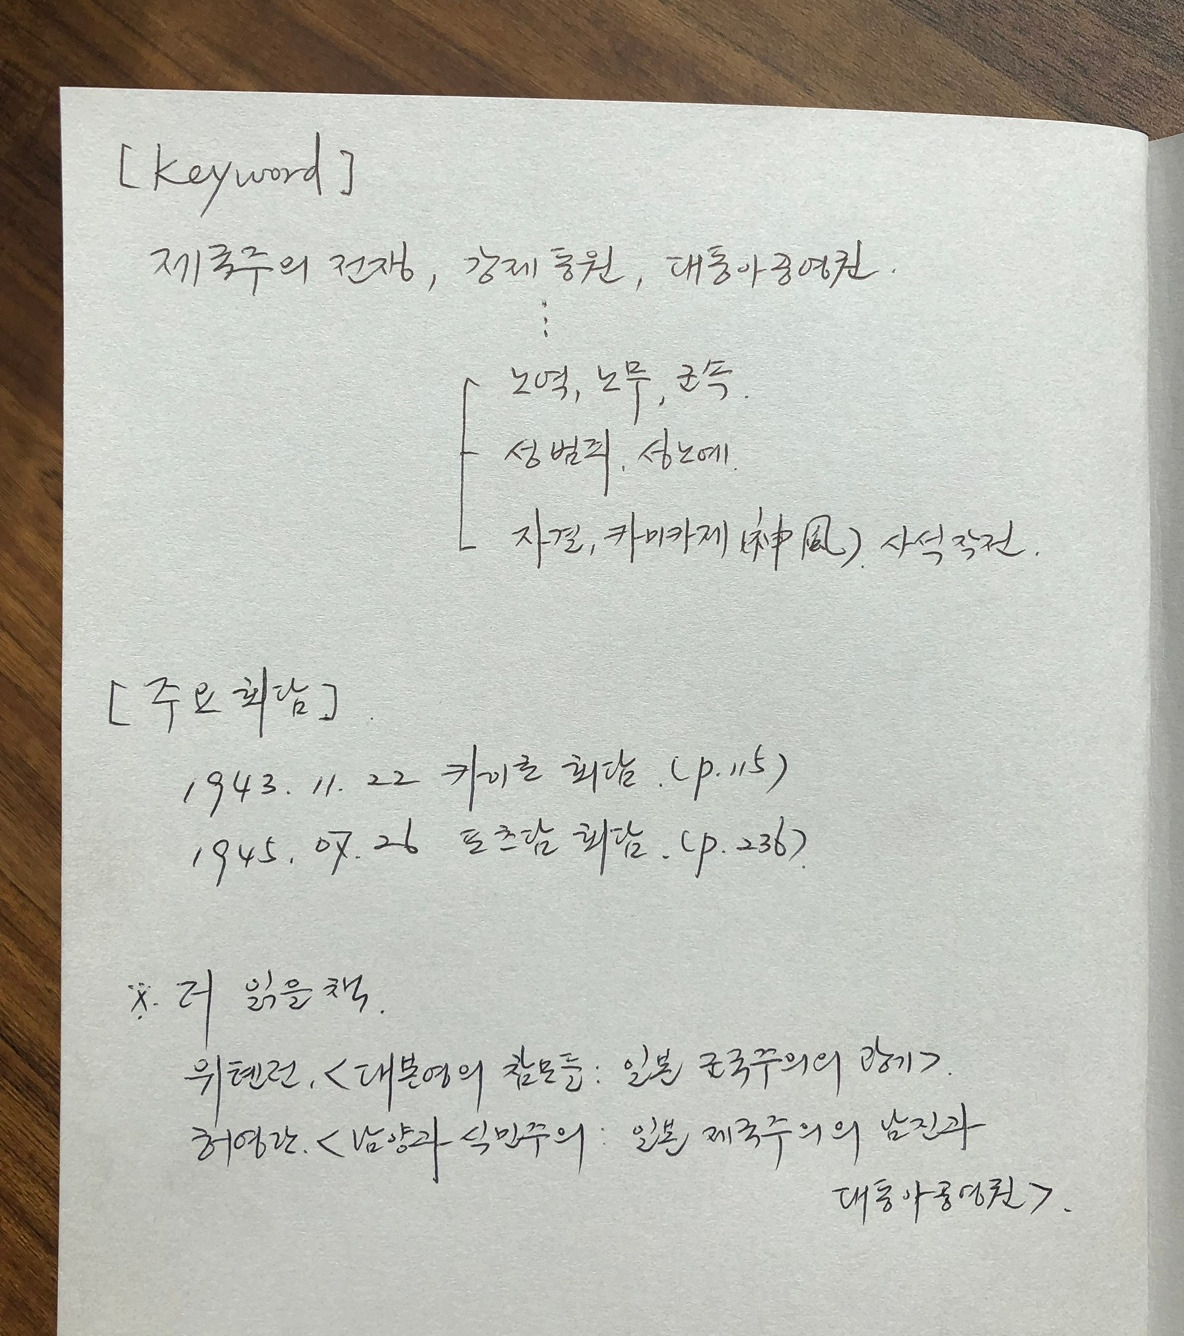 [Keyword]
제국주의 전쟁, 강제동원, 대동아공영권.
⋮
노역, 노무, 군속.
성범죄, 성노예.
자결, 카미카제(神風), 사석작전.
[주요 회담].
1943. 11. 22 카이로 회담. (p.115)
1945. 07. 26 포츠담 회담. (p.236).
※. 더 읽을 책.
위톈런, <대본영의 참모들: 일본 군국주의의 광기>.
허영란. <남양과 식민주의: 일본 제국주의의 남진과
대동아공영권>.